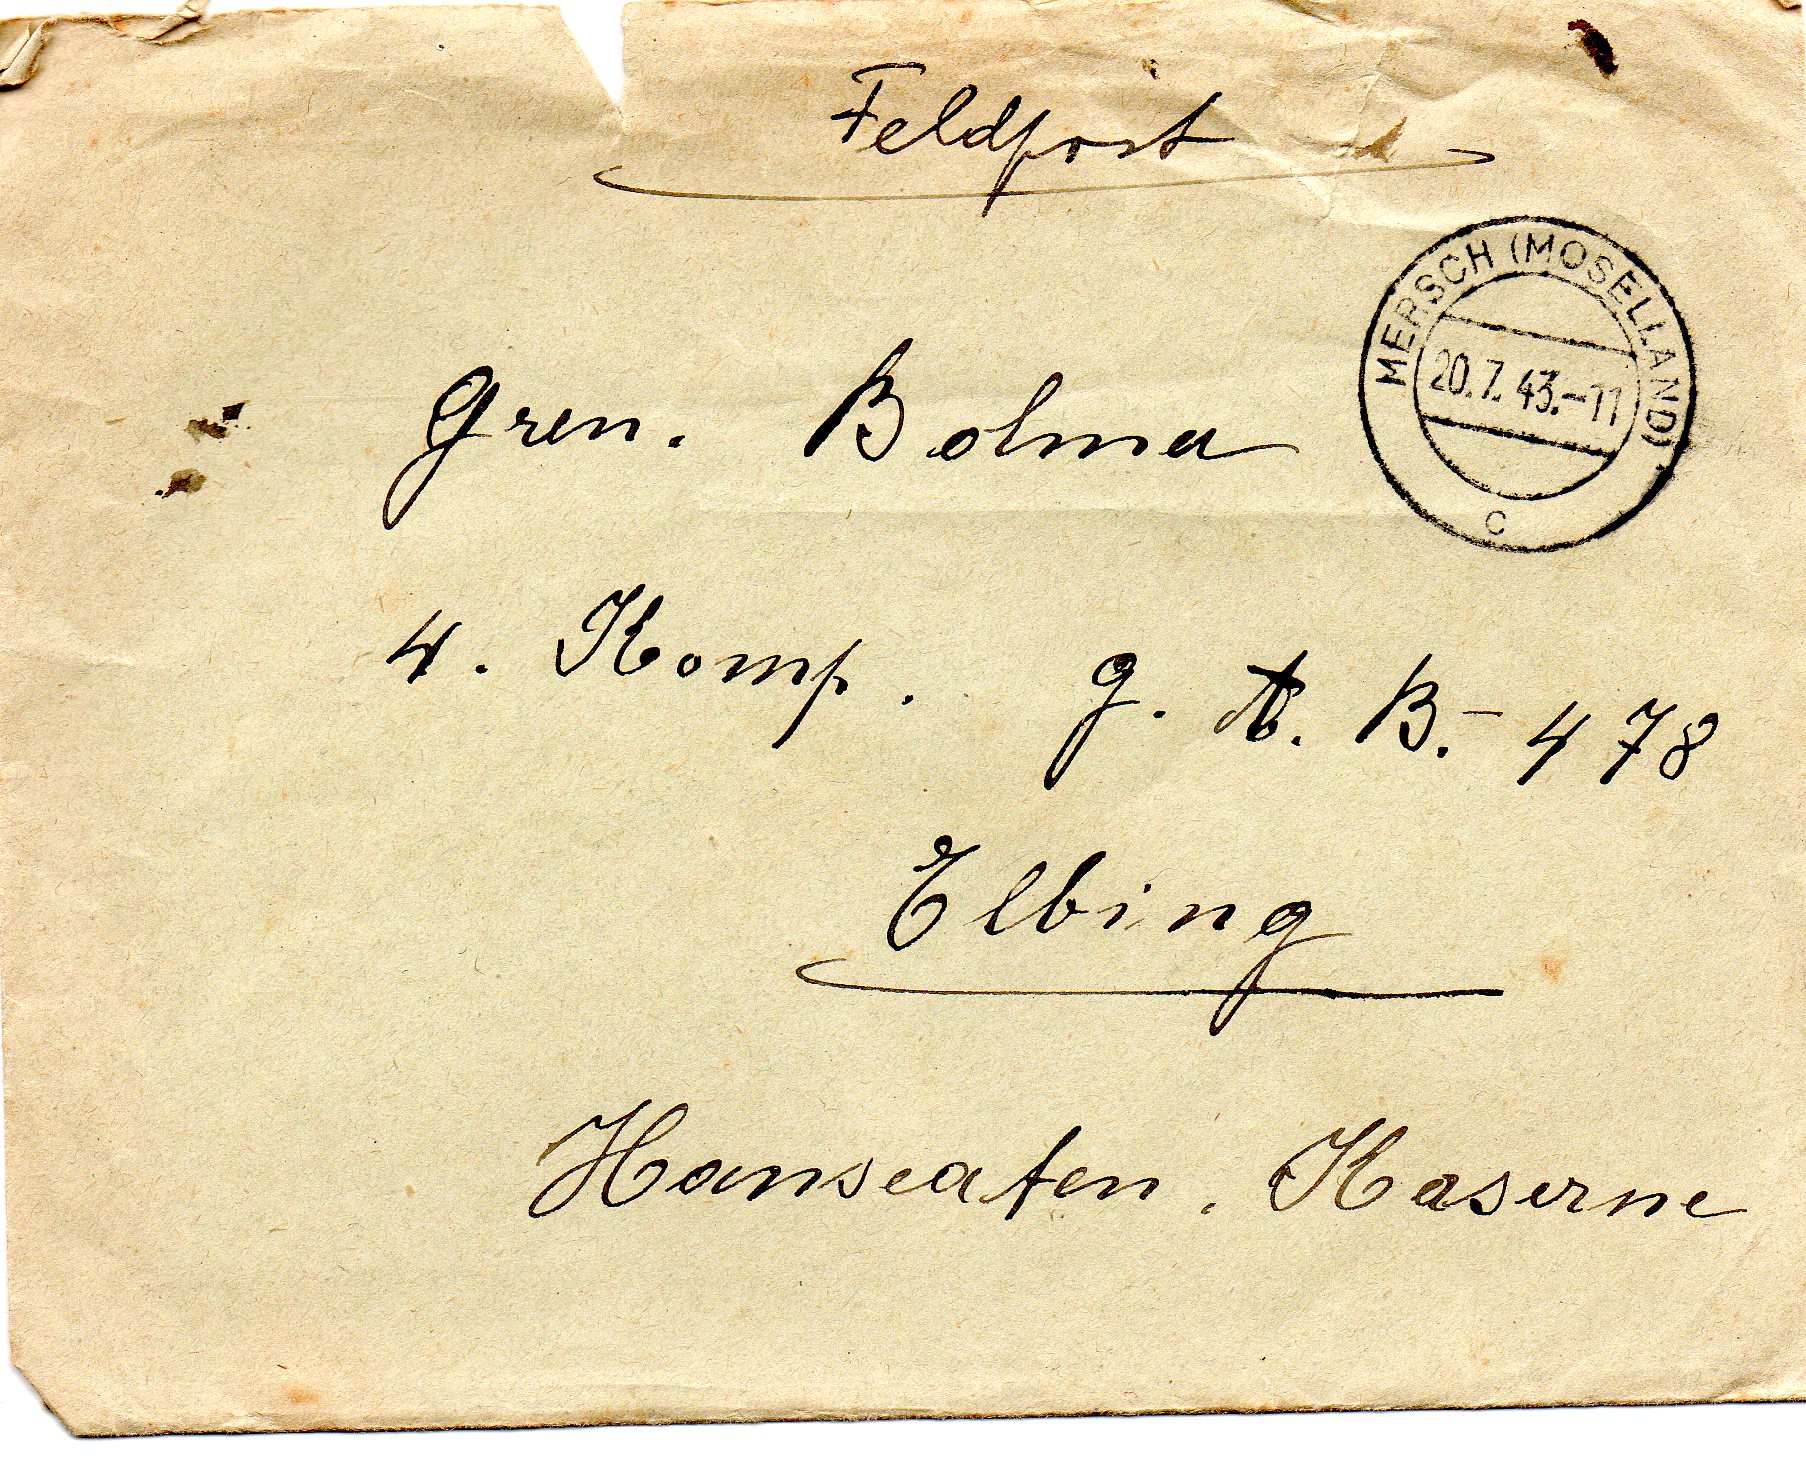 Feldpost
MERSCH (MOSELLAND)
20.7.43.-11
c
Gren. Bolma
4. Komp. g. A. B.- 478
Elbing
Hanseaten. Kaserne